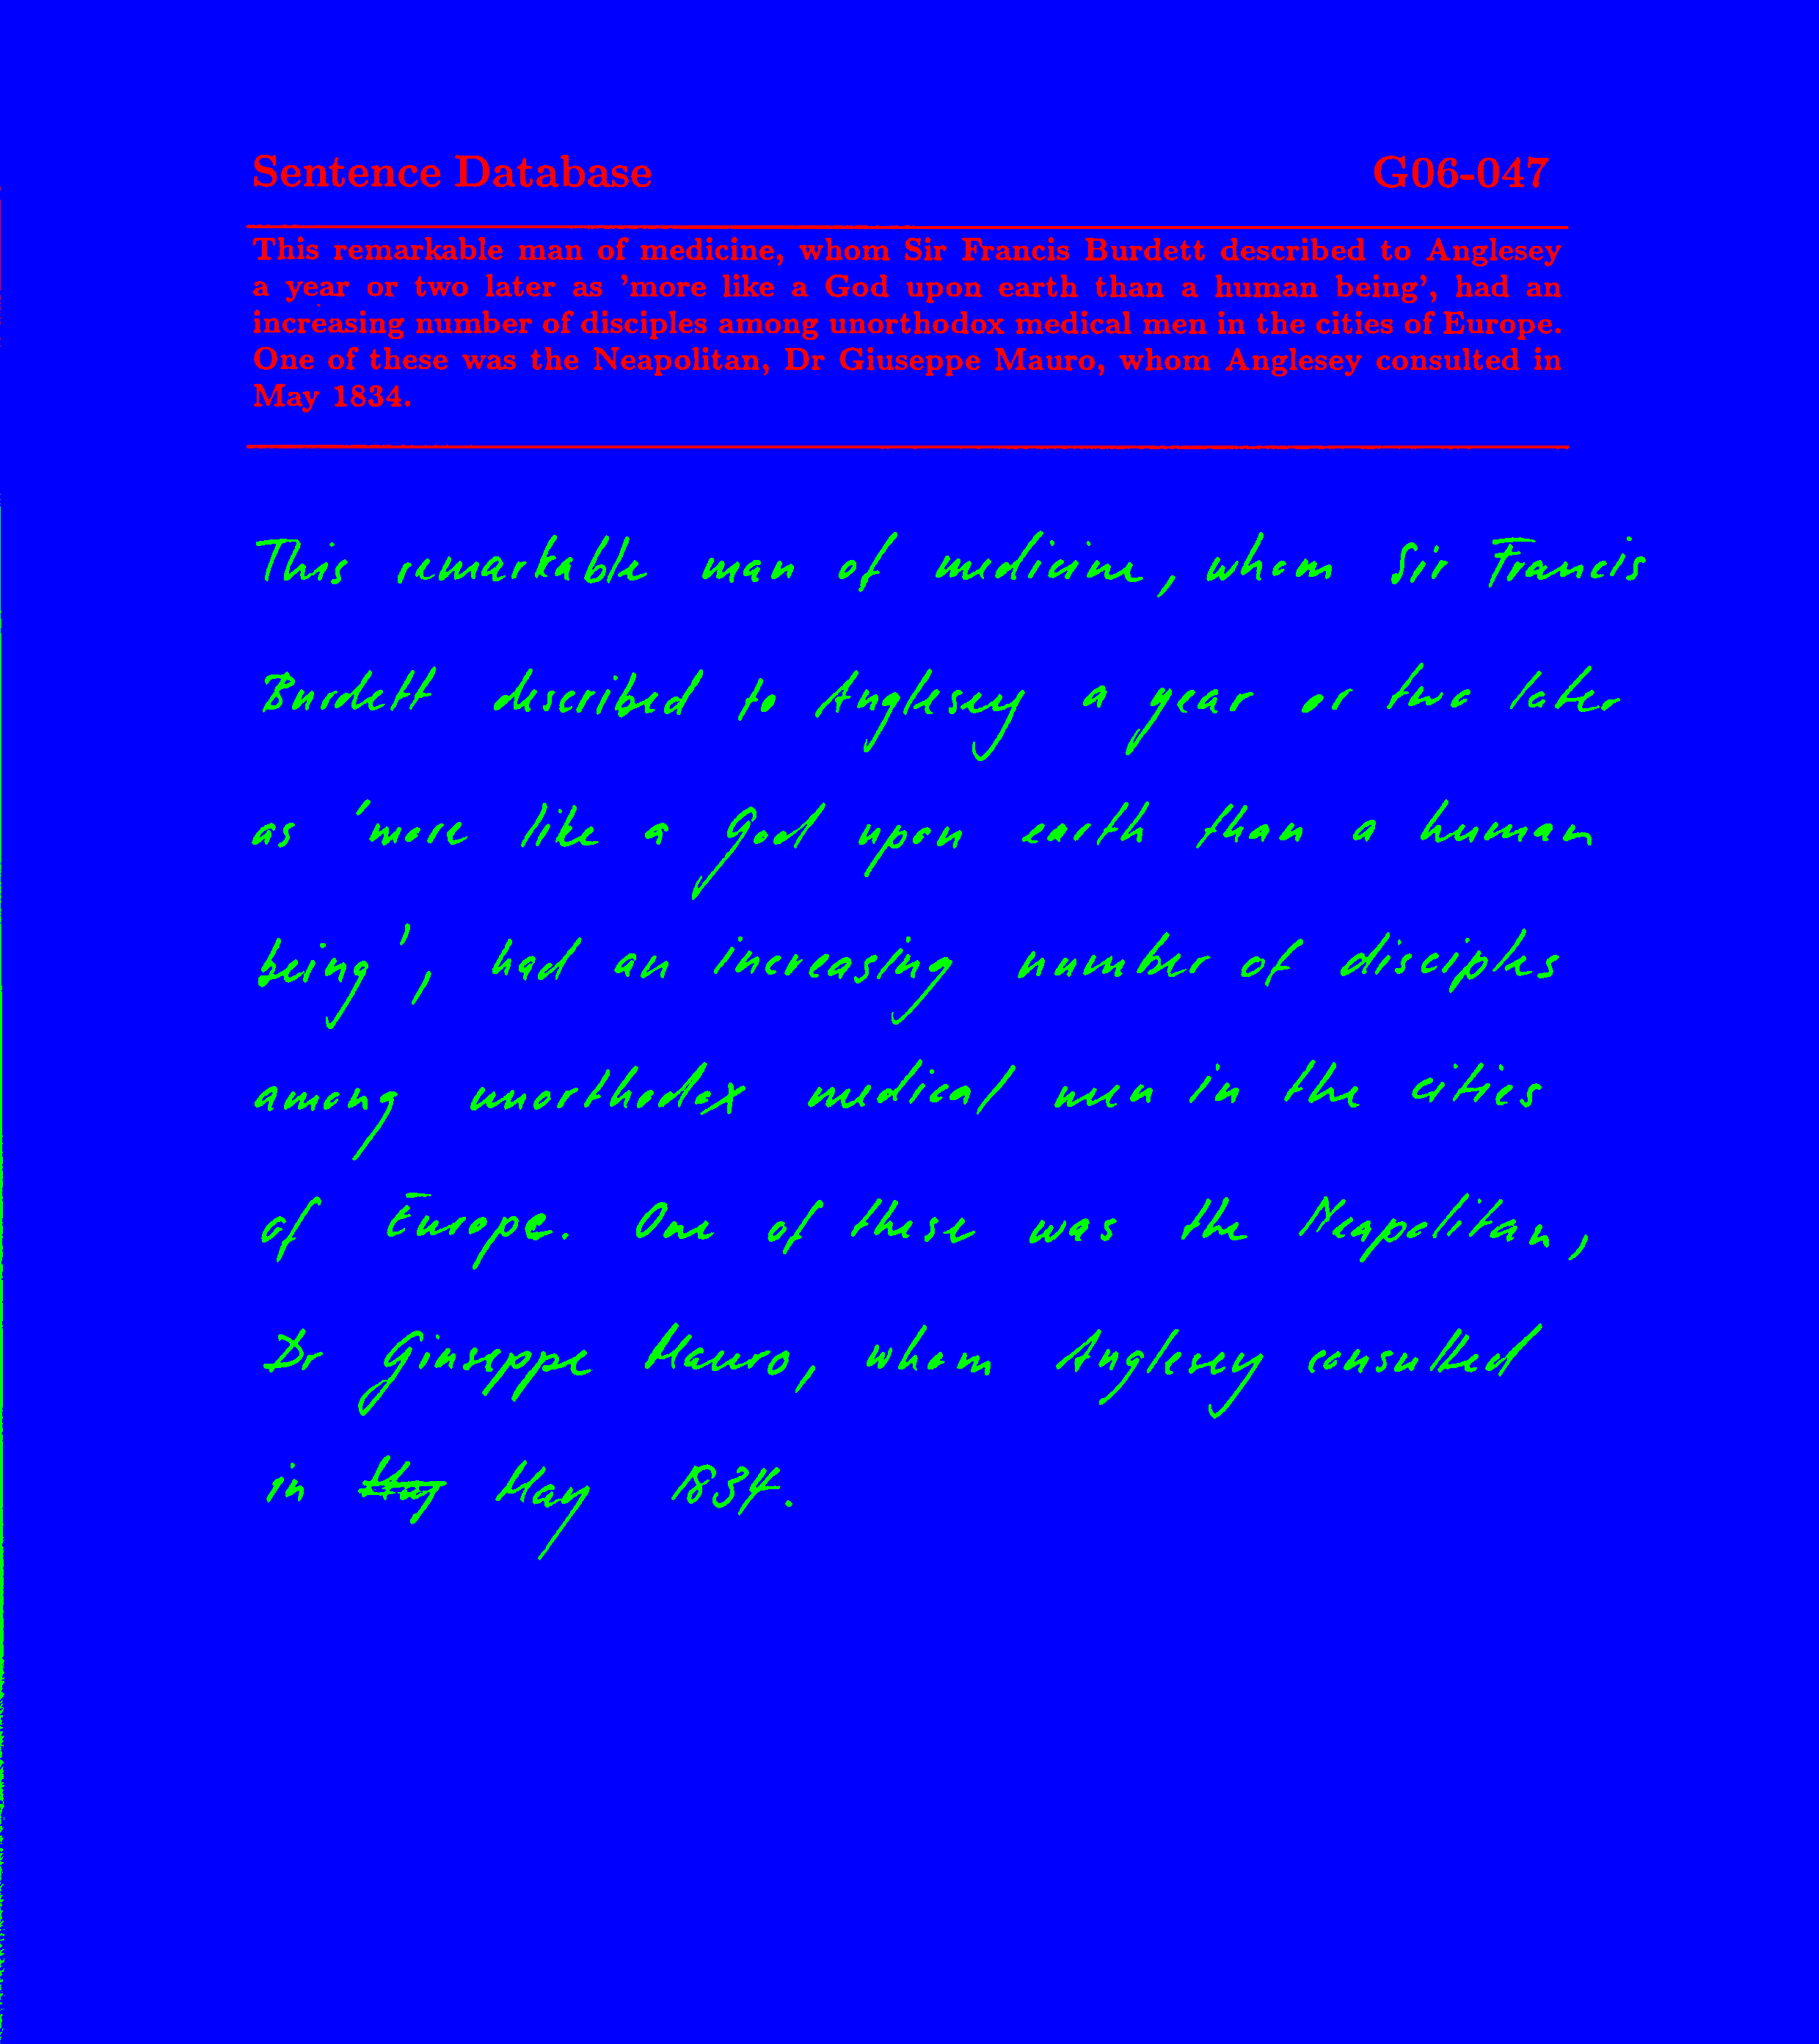 Sentence Database G06-047
This remarkable man of medicine, whom Sir Francis Burdett described to Anglesey
a year or two later as 'more like a God upon earth than a human being', had an
increasing number of disciples among unorthodox medical men in the cities of Europe.
One of these was the Neapolitan, Dr Giuseppe Mauro, whom Anglesey consulted in
May 1834.
This remarkable man of medicine, whom Sir Francis
Burdett described to Anglesey a year or two later
as 'more like a God upon earth than a human
being', had an increasing number of disciples
among unorthodox medical men in the cities
of Europe. One of these was the Neapolitan,
Dr Giuseppe Mauro, whom Anglesey consulted
in May 1834.